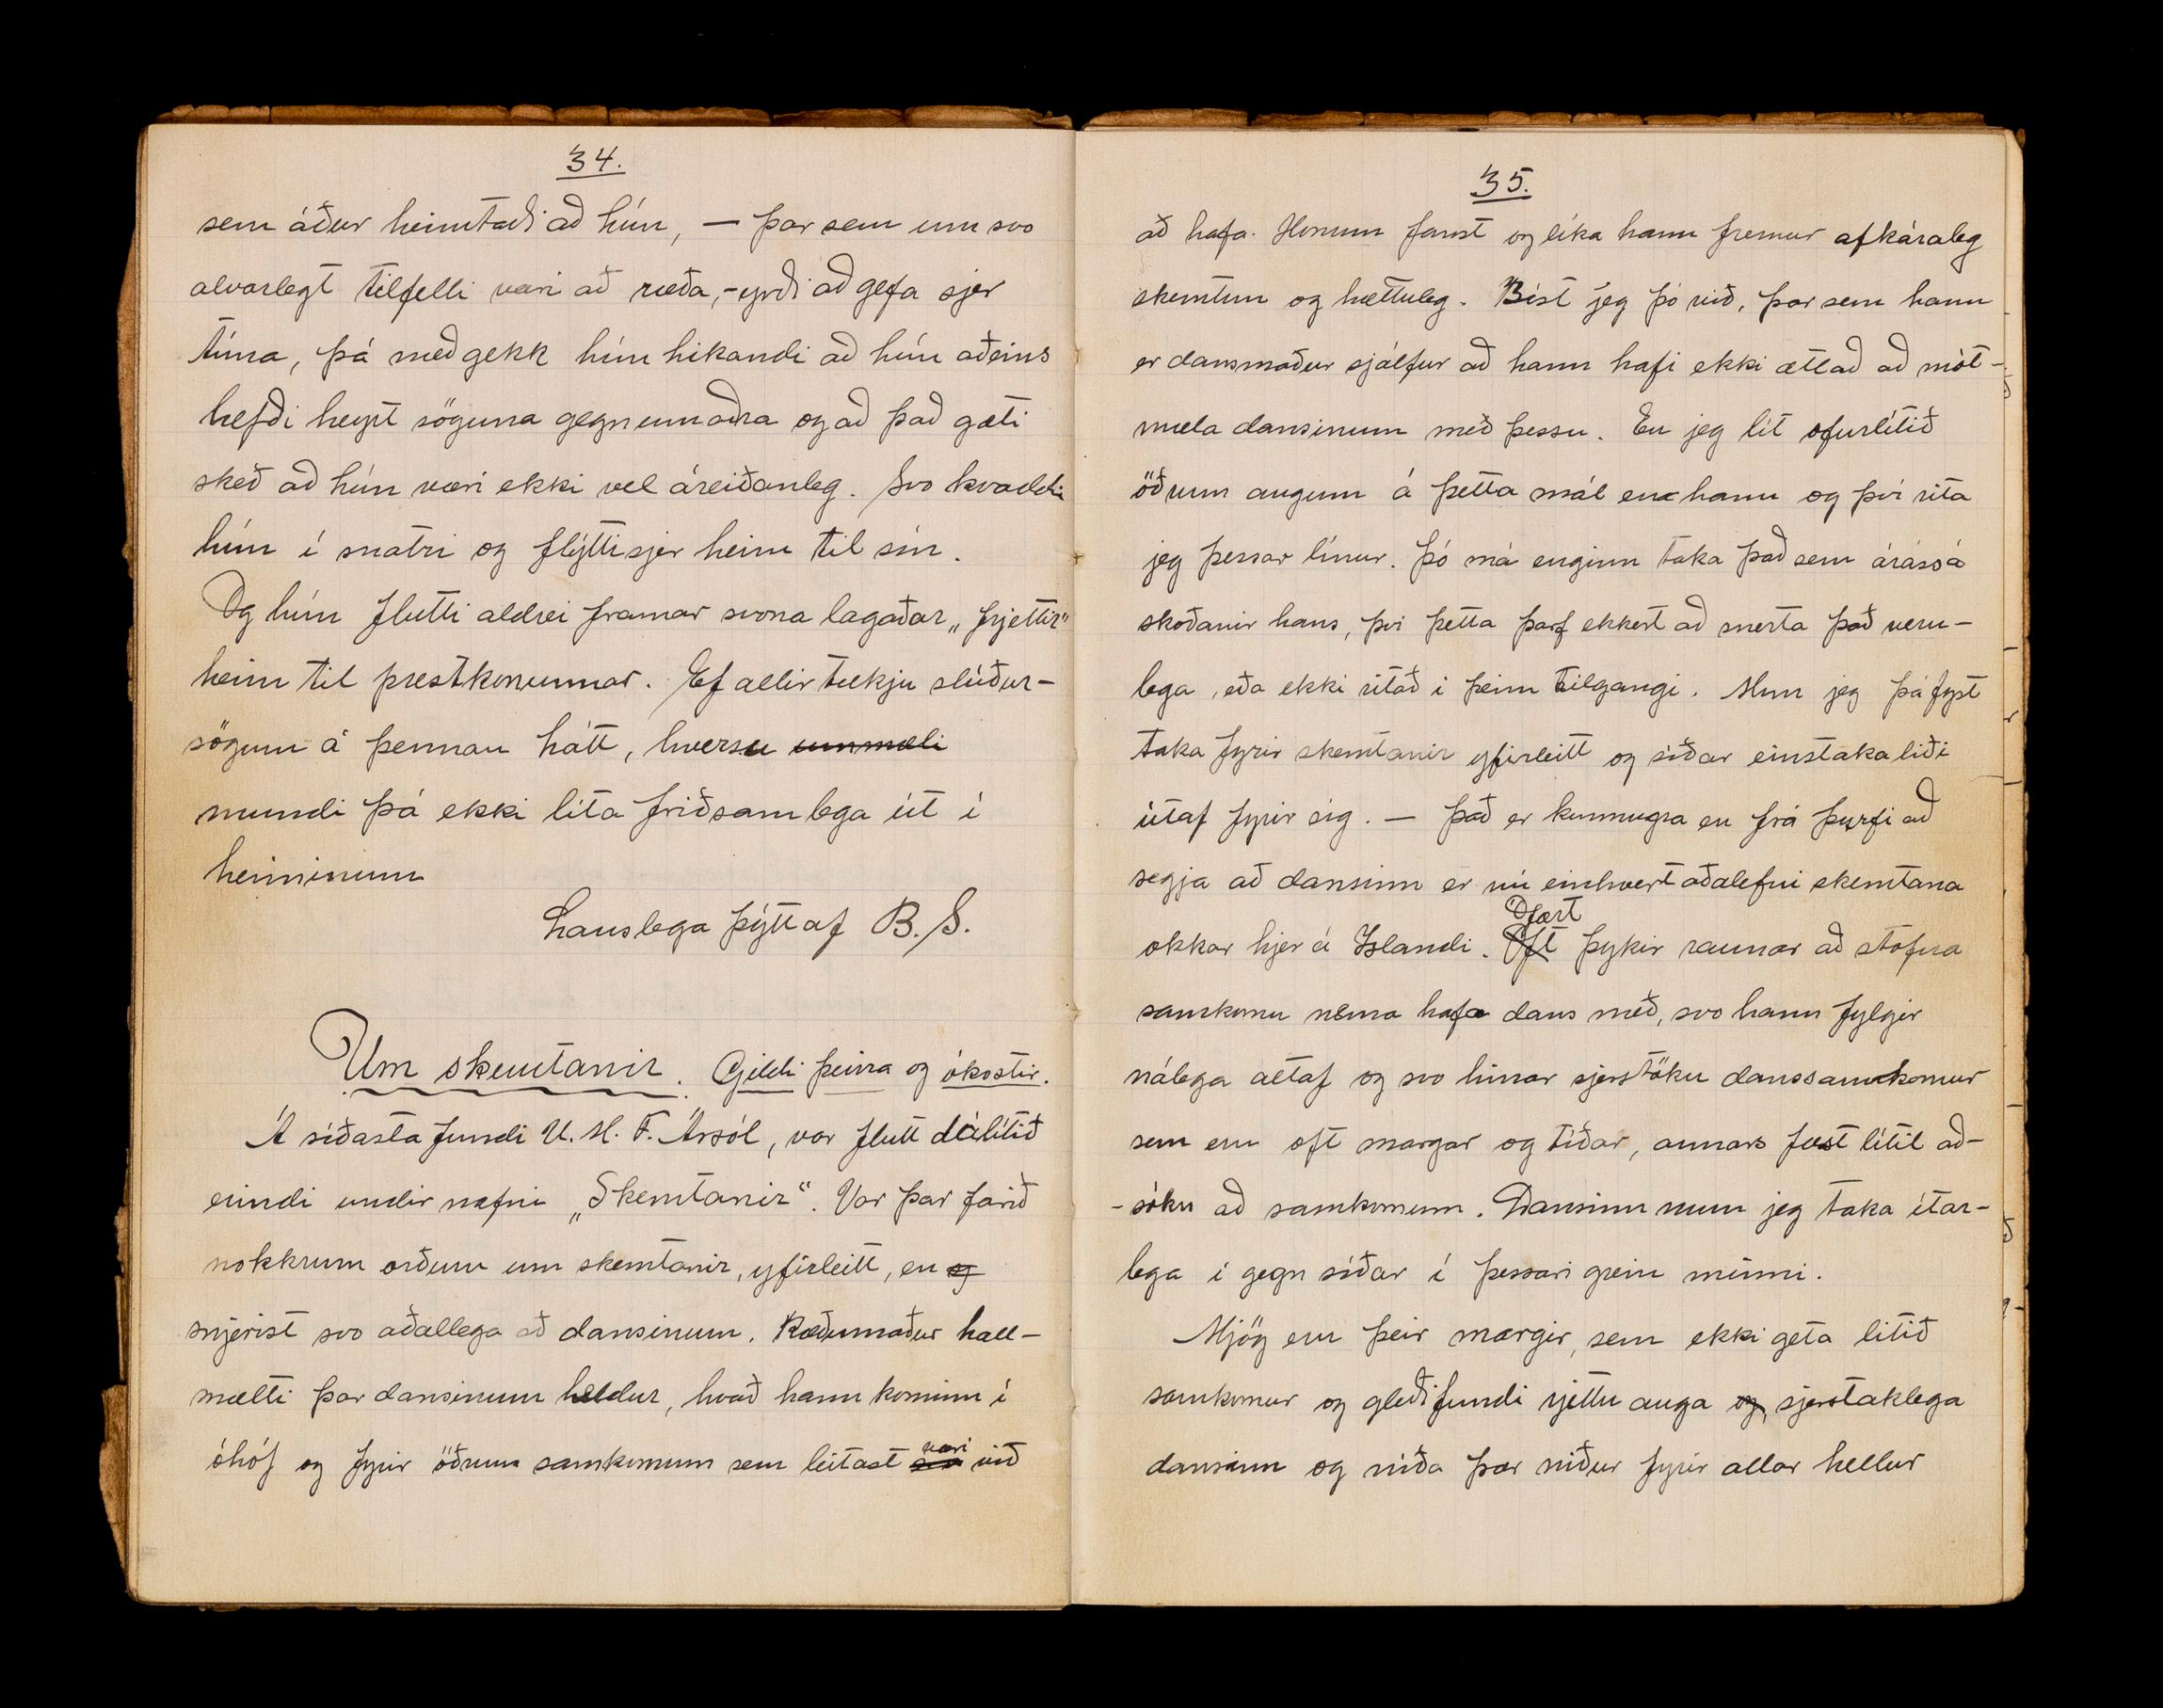 34.
sem áður heimtaði að hún, — þar sem um svo
alvarlegt tilfelli væri að ræða, - yrði að gefa sjer
tíma, þá meðgekk hún hikandi að hún aðeins
hefði heyrt söguna gegnum aðra og að það gæti
skeð að hún væri ekki vel áreiðanleg. Svo kvaddi
hún í snatri og flýtti sjer heim til sín.
Og hún flutti aldrei framar svona lagaðar „frjettir"
heim til prestkonunnar. Ef allir tækju slúður-
sögum á þennan hátt, hversu ummæli
mundi þá ekki líta friðsamlega út í
heiminum
Lauslega þýtt af B. S.
Um skemtanir. Gildi þeirra og ókostir.
Á síðasta fundi U. M. F. Ársól, var flutt dálítið
erindi undir nafni „Skemtanir“. Var þar farið
nokkrum orðum um skemtanir, yfirleitt, en og
snjerist svo aðallega að dansinum. Ræðumaður hall-
mælti þar dansinum heldur, hvað hann kominn í
óhóf og fyrir öðrum samkomum sem leitast væri við
35.
að hafa. Honum fanst og líka hann fremur afkáraleg
skemtun og hættuleg. Býst jeg þó við, þar sem hann
er dansmaður sjálfur að hann hafi ekki ætlað að mót-
mæla dansinum með þessu. En jeg lít ofurlítið
öðrum augum á þetta mál en hann og því rita
jeg þessar línur. Þó má enginn taka það sem árás á
skoðanir hans, því þetta þarf ekkert að snerta það veru-
lega, eða ekki ritað í þeim tilgangi. Mun jeg þá fyst
taka fyrir skemtanir yfirleitt og síðar einstaka liði
útaf fyrir sig. — Það er kunnugra en frá þurfi að
segja að dansinn er nú einhvert aðalefni skemtana
okkar hjer á Íslandi. Oft Ófært þykir raunar að stofna
samkomu nema hafa dans með, svo hann fylgir
nálega altaf og svo hinar sjerstöku danssamkomur
sem eru oft margar og tíðar, annars fæst lítil að-
-sókn að samkomum. Dansinn mun jeg taka ítar-
lega í gegn síðar í þessari grein minni.
Mjög eru þeir margir, sem ekki geta litið
samkomur og gleðifundi rjettu auga og, sjerstaklega
dansinn og níða þær niður fyrir allar hellur